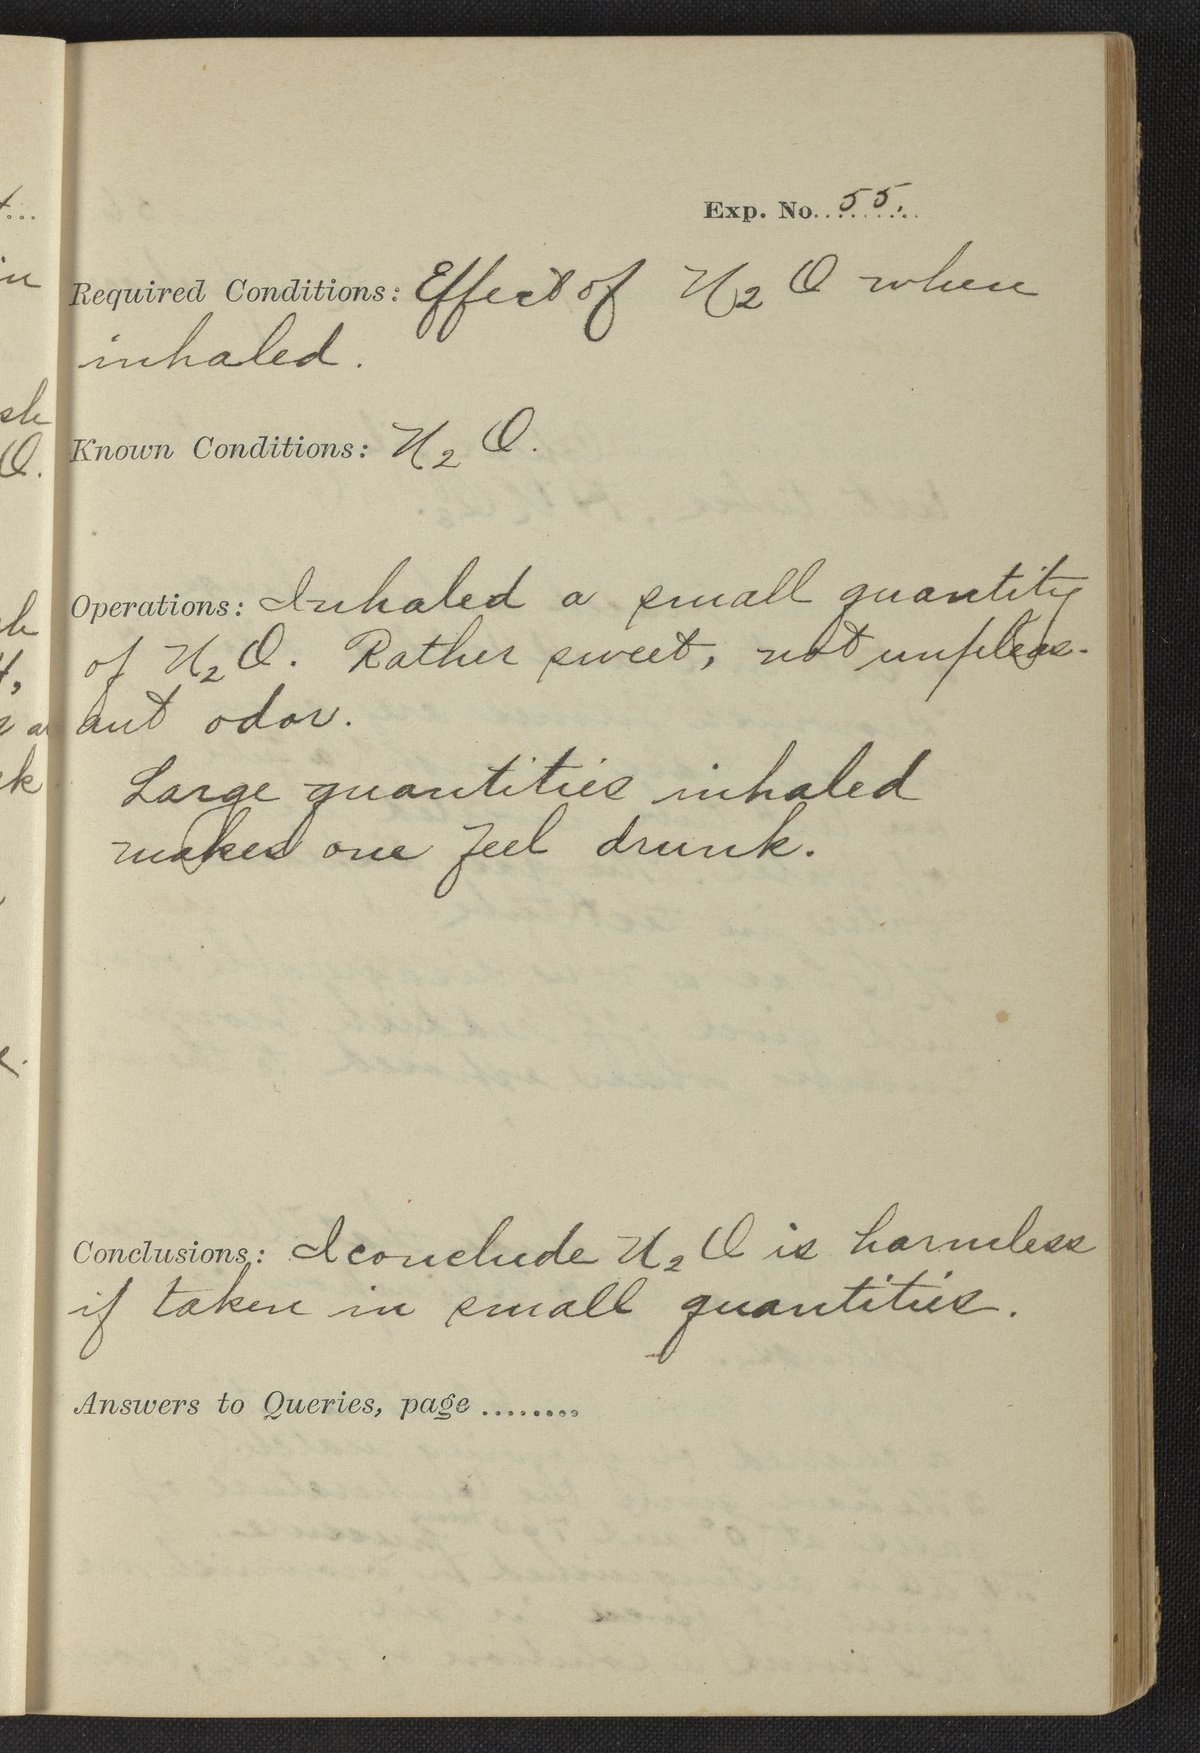 Exp. No. 55.
Required Conditions: Effect of N2O when
inhaled.
Known Conditions: N2O.
Operations: Inhaled a small quantity
of N2O. Rather sweet, not unpleas-
ant odor.
Large quantities inhaled
makes one feel drunk.
Conclusions: I conclude N2O is harmless
if taken in small quantities.
Answers to Queries, page ........